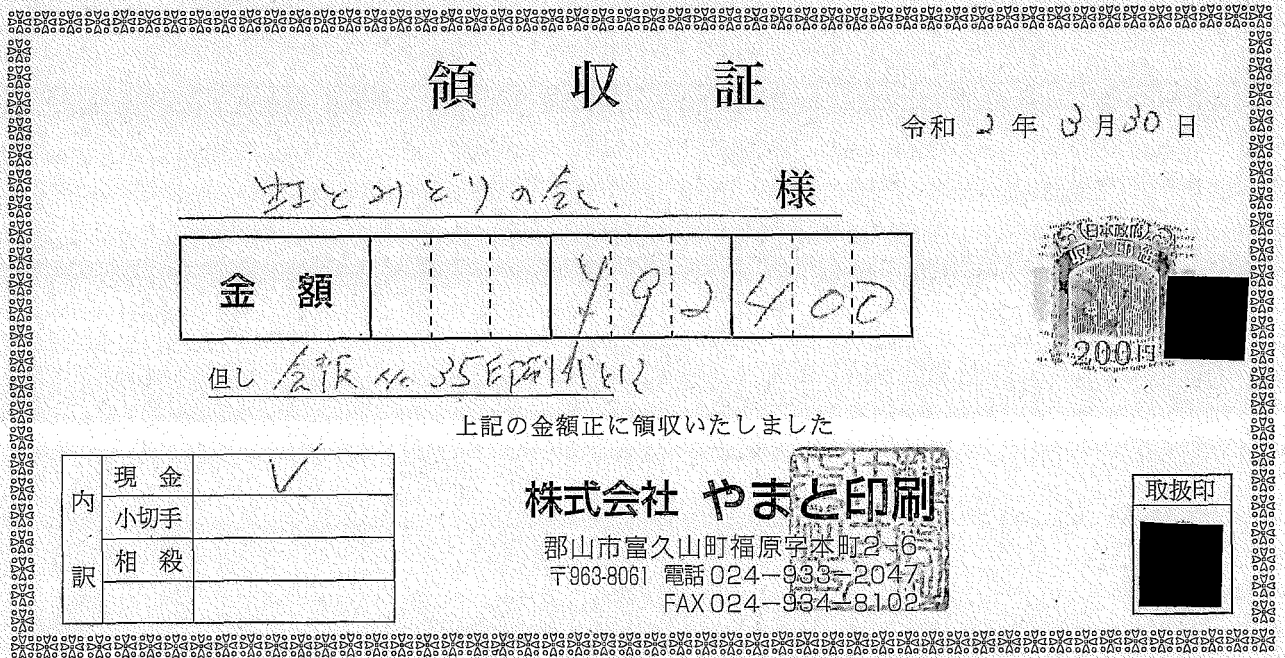 領収証
令和 2 年 3 月 30 日
虹とみどりの会 様
金額 ¥92400
但し 会報 No. 35印刷代として
上記の金額正に領収いたしました
日本政府
収入印紙
200円
内訳
現金 ✓
小切手
相殺
株式会社 やまと印刷
郡山市富久山町福原字本町2-6
〒963-8061 電話 024-933-2047
FAX 024-934-8102
取扱印